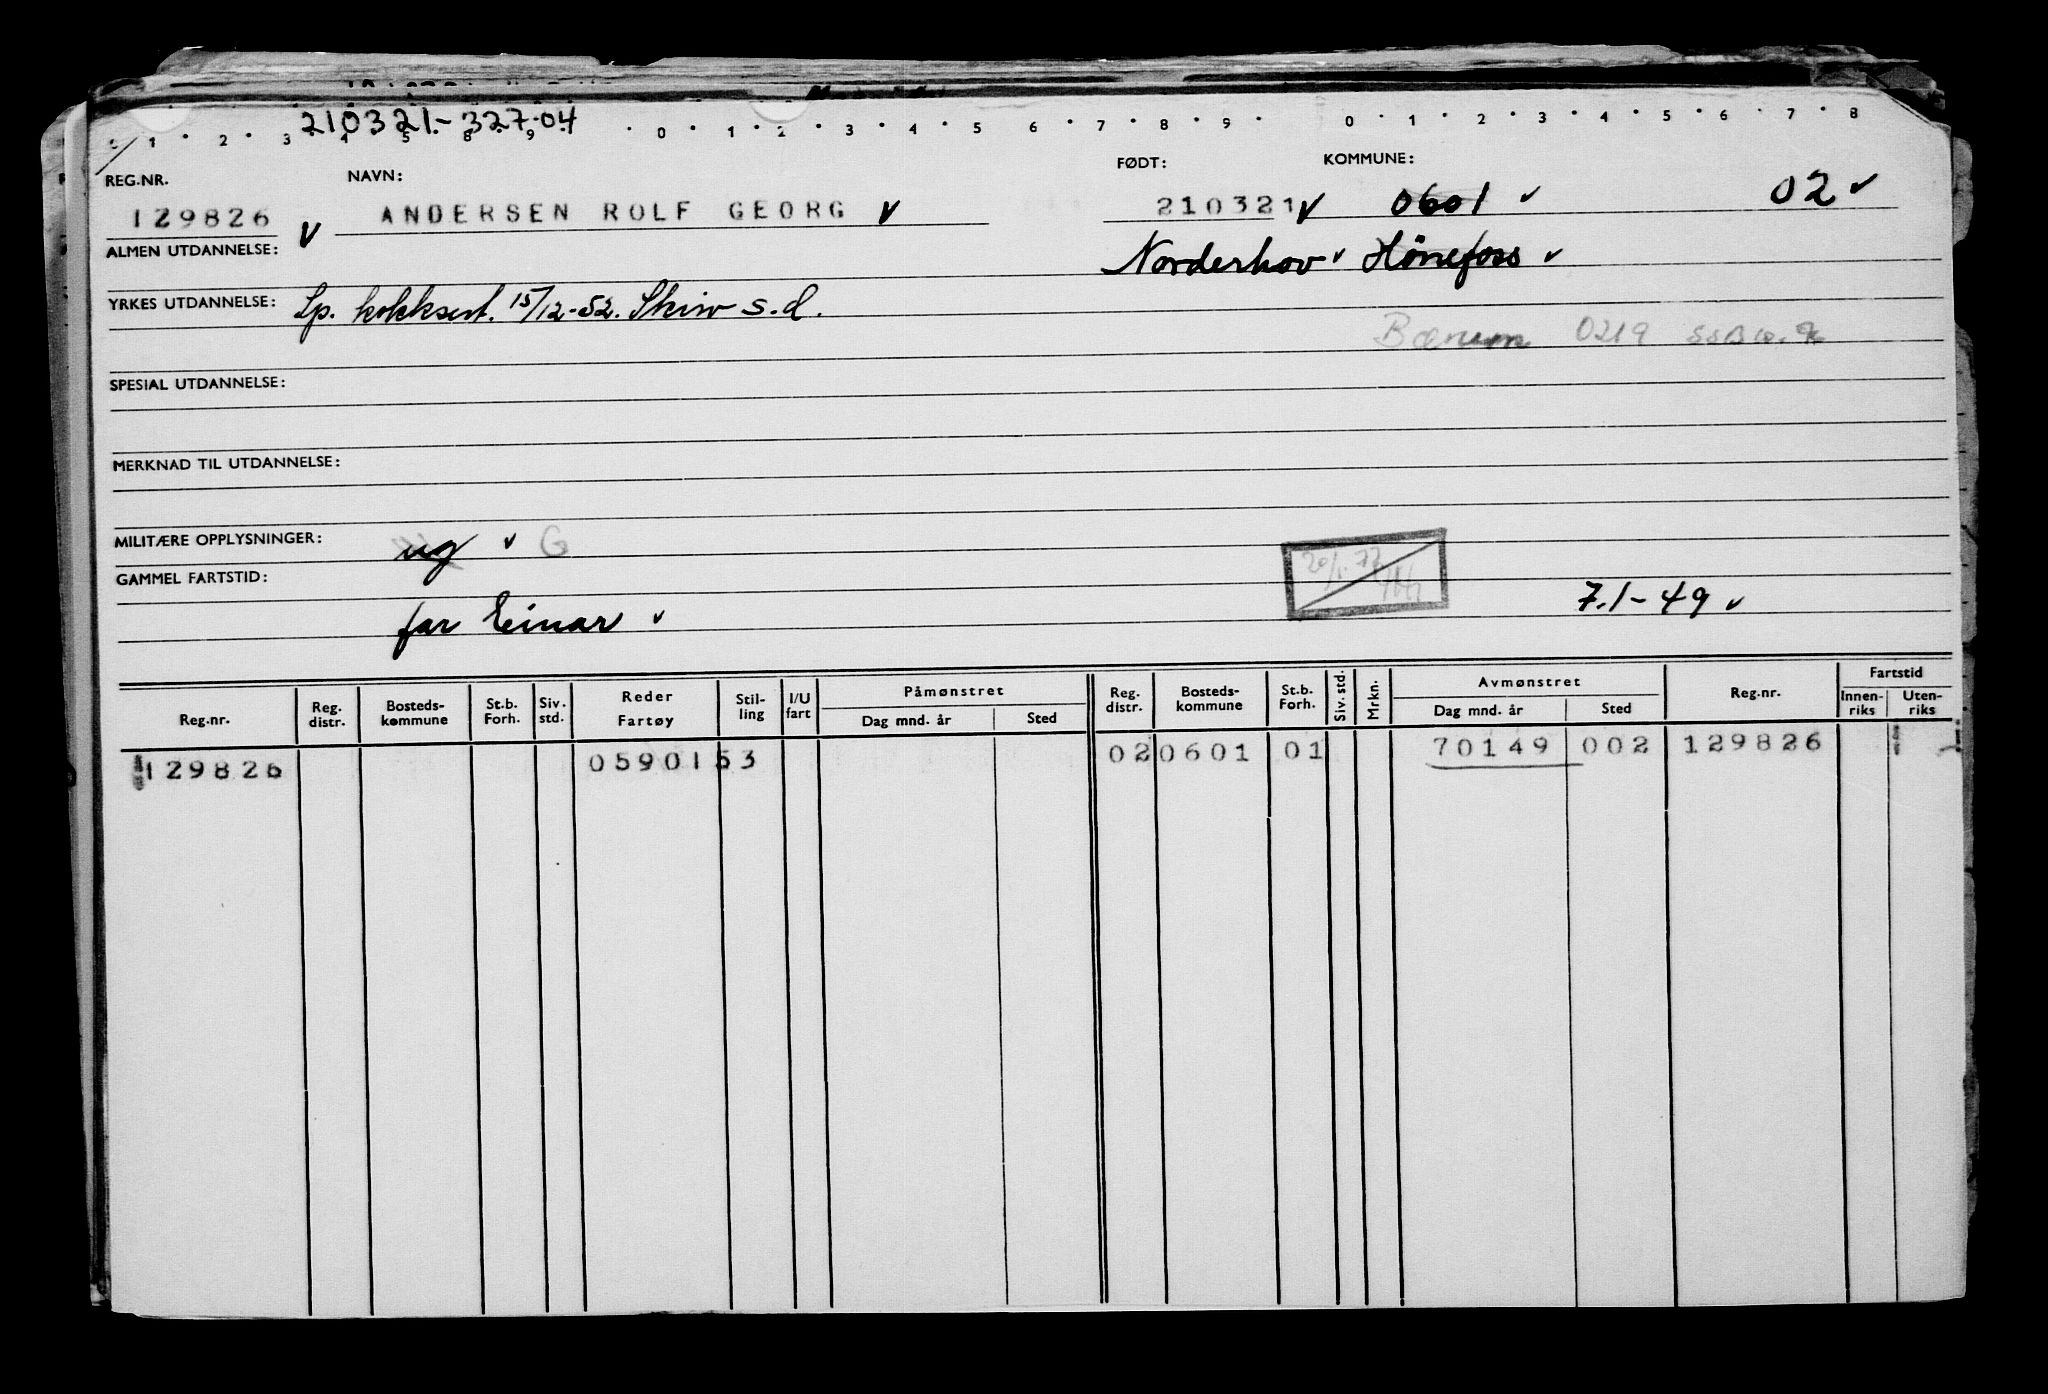 210321-32704
1 2 3 4 5 8 9 0 1 2 3 4 5 6 7 8 9 0 1 2 3 4 5 6 7 8
REG.NR. NAVN: FØDT: KOMMUNE:
129826 v ANDERSEN ROLF GEORG v 210321 v 0601 v 02 v
ALMEN UTDANNELSE: Norderhov v Hönefoss v
YRKES UTDANNELSE: Sp. kokksert. 15/12-52. Skiw s.d.
Bærum 0219
SPESIAL UTDANNELSE:
MERKNAD TIL UTDANNELSE:
MILITÆRE OPPLYSNINGER: ug v G
GAMMEL FARTSTID: 20/1.77
far Einar v 7.1-49 v
Reg.nr. Reg. distr. Bosteds-kommune St.b. Forh. Siv. std. Reder Fartøy Stil-ling I/U fart Påmønstret Dag mnd. år Sted Reg. distr. Bosteds-kommune St.b. Forh. Siv. std. Mrkn. Avmønstret Dag mnd. år Sted Reg.nr. Fartstid Innen-riks Uten-riks
129826 0590153 020601 01 70149 002 129826